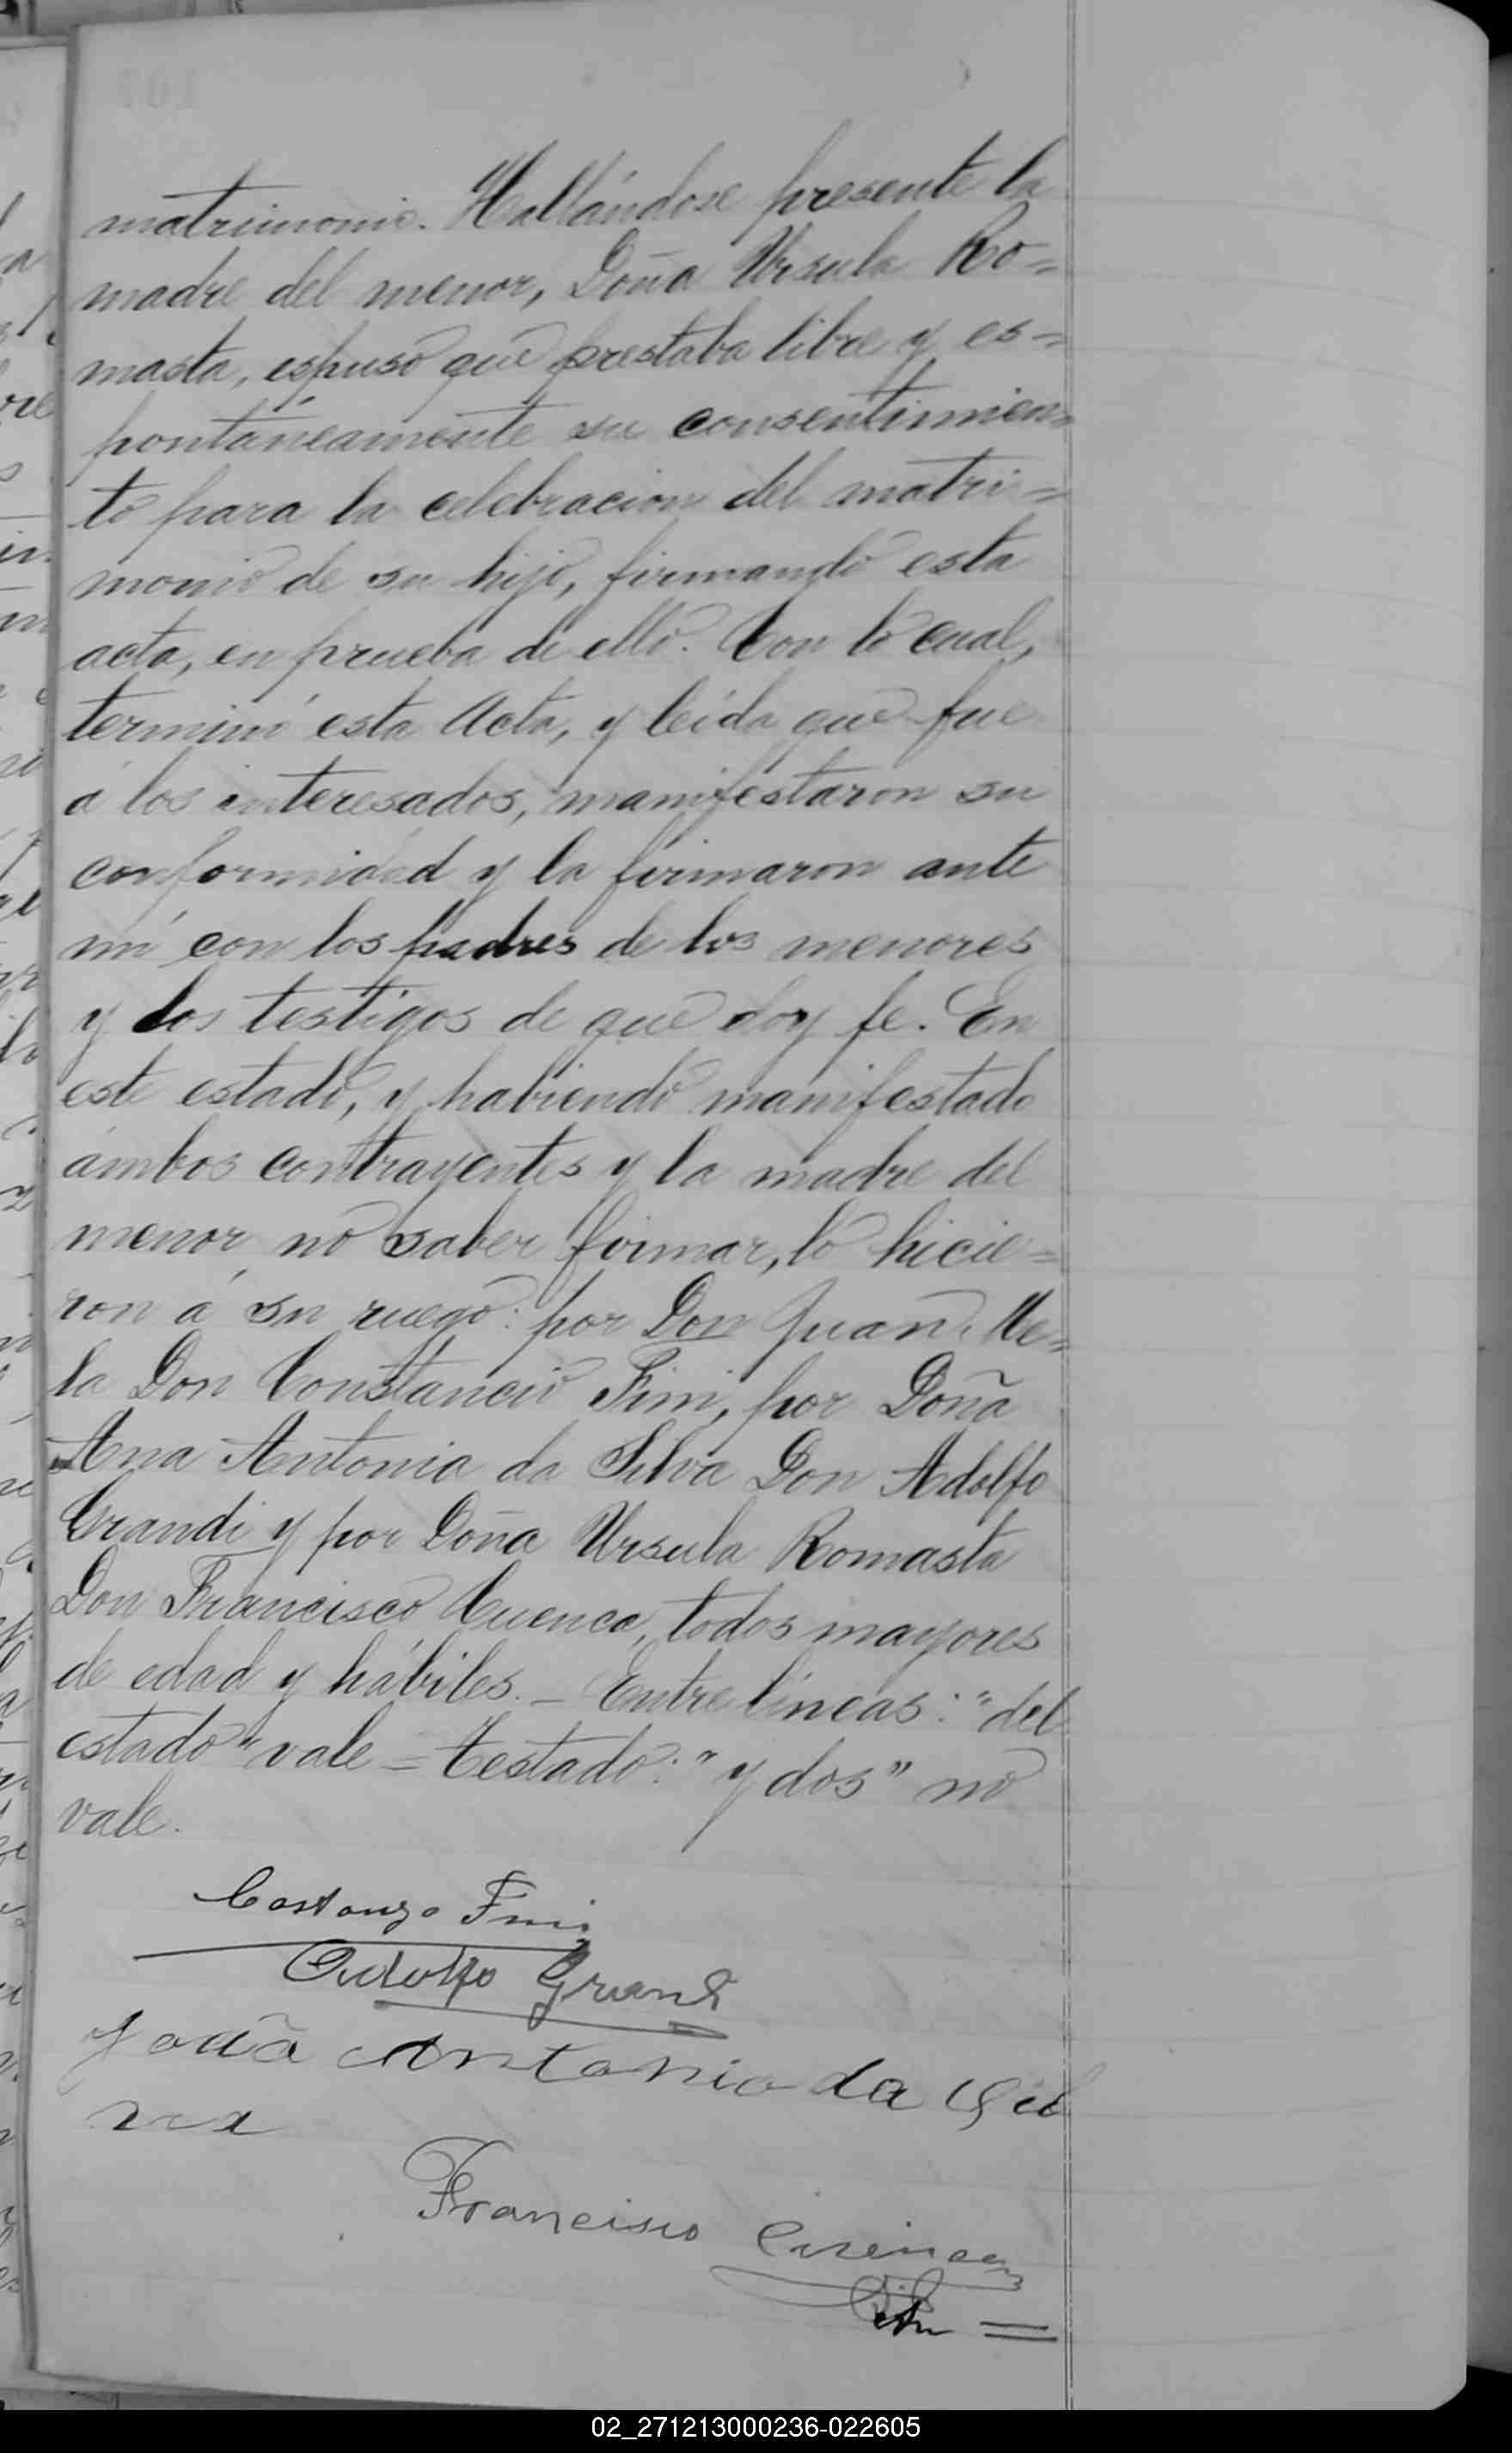 matrimonio. Hallándose presente la
madre del menor, Doña Ursula Ro=
masta, espuso que prestaba libre y es=
pontáneamente su consentimien=
to para la celebracion del matri=
monio de su hijo, firmando esta
acta, en prueba de ello. Con lo cual,
terminó esta Acta, y leída que fue
á los interesados, manifestaron su
conformidad y la firmaron ante
mí con los padres de los menores
y los testigos de que doy fe. En
este estado, y habiendo manifestado
ámbos contrayentes y la madre del
menor no saber firmar, lo hicie=
ron á su ruego: por Don Juan Me=
la Don Constancio Fini, por Doña
Ana Antonia da Silva Don Adolfo
Grandi y por Doña Ursula Romasta
Don Francisco Cuenca, todos mayores
de edad y hábiles. _ Entre líneas: "del
estado" vale = testado: "y dos" no
vale.
Costanzo Fini
Adolfo Grandi
João Antonio da Sil
va
Francisco Cuenca
02_271213000236-022605